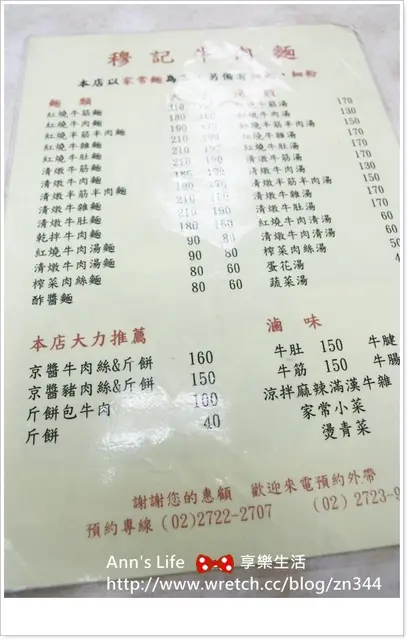 穆記牛肉麵
本店以家常麵為
麵類
紅燒牛筋麵
紅燒牛肉麵 180
紅燒半筋半肉麵 190
紅燒牛雜麵 210
紅燒牛肚麵 210 190
清燉牛筋麵 210 190
清燉牛肉麵 180 160
清燉半筋半肉麵 190 170
清燉牛雜麵 210 190
清燉牛肚麵 210 190
乾拌牛肉麵 180 160
紅燒牛肉湯麵 90 80
清燉牛肉湯麵 90 80
榨菜肉絲麵 80 60
酢醬麵 80 60
紅燒牛筋湯 170
紅燒牛肉湯 130
紅燒半筋半肉湯 150
紅燒牛雜湯 170
紅燒牛肚湯 170
清燉牛筋湯 170
清燉牛肉湯 130
清燉半筋半肉湯 150
清燉牛雜湯 170
清燉牛肚湯 170
紅燒牛肉清湯
清燉牛肉清湯
榨菜肉絲湯
蛋花湯
蔬菜湯
本店大力推薦
京醬牛肉絲&斤餅 160
京醬豬肉絲&斤餅 150
斤餅包牛肉 100
斤餅 40
滷味
牛肚 150 牛腱
牛筋 150 牛腸
涼拌麻辣滿漢牛雜
家常小菜
燙青菜
謝謝您的惠顧 歡迎來電預約外帶
預約專線 (02)2722-2707 (02) 2723-9
Ann's Life 享樂生活
http://www.wretch.cc/blog/zn344